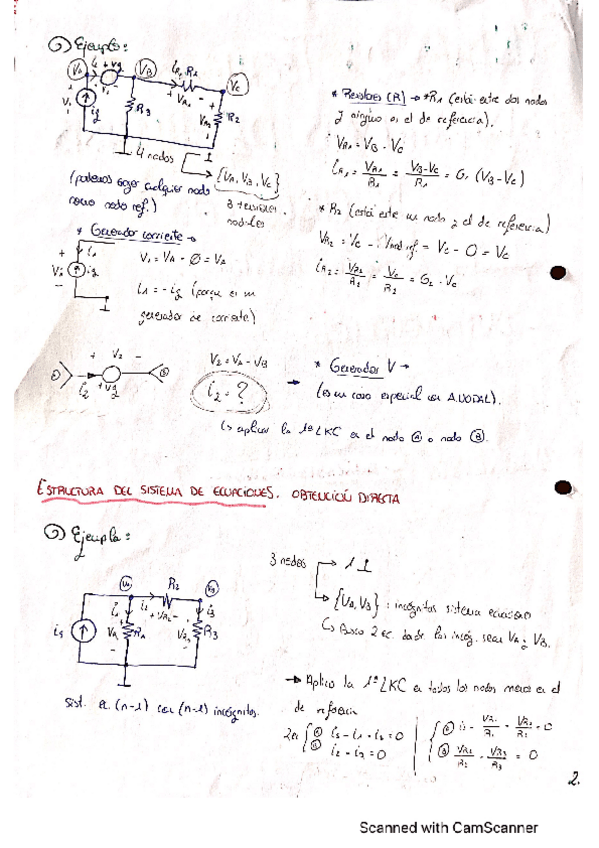 Ejemplo:
VA
i
+ Vg
VB
iR1
R1
VC
+ VR1 -
V1
ig
R3
+
VR2
-
R2
4 nodos
[VA, VB, VC]
(podemos coger cualquier nodo
como nodo ref.)
3 tensiones
nodales
* Generador corriente →
+
V1
-
ig
i1
V1 = VA - Ø = VA
i1 = -ig (porque es un
generador de corriente)
* Resistores (R) → * R1 (está entre dos nodos
y ninguno es el de referencia).
VR1 = VB - VC
iR1 = VR1/R1 = VB-VC/R1 = G1 (VB-VC)
* R2 (está entre un nodo y el de referencia)
VR2 = VC - Vnod ref. = VC - 0 = VC
iR2 = VR2/R2 = VC/R2 = G2 · VC
+ V2 -
i2
+Vg
V2 = VA - VB
i2 = ?
→ * Generador V →
(es un caso especial en A.NODAL).
↳ aplicar la 1ª LKC en el nodo A o nodo B.
ESTRUCTURA DEL SISTEMA DE ECUACIONES. OBTENCIÓN DIRECTA
Ejemplo:
VA
i2
R2
VB
+ VR2 -
is
i1
VA
R1
i3
R3
3 nodos
{VA, VB} : incógnitas sistema ecuaciones
↳ Busco 2 ec. donde las incóg. sean VA y VB.
Sist. ec. (n-1) con (n-1) incógnitas.
→ Aplico la 1ª LKC en todos los nodos menos en el
de referencia
2ec { A is - i1 - i2 = 0
B i2 - i3 = 0
{ A is - VR1/R1 - VR2/R2 = 0
B VR2/R2 - VR3/R3 = 0
2.
Scanned with CamScanner